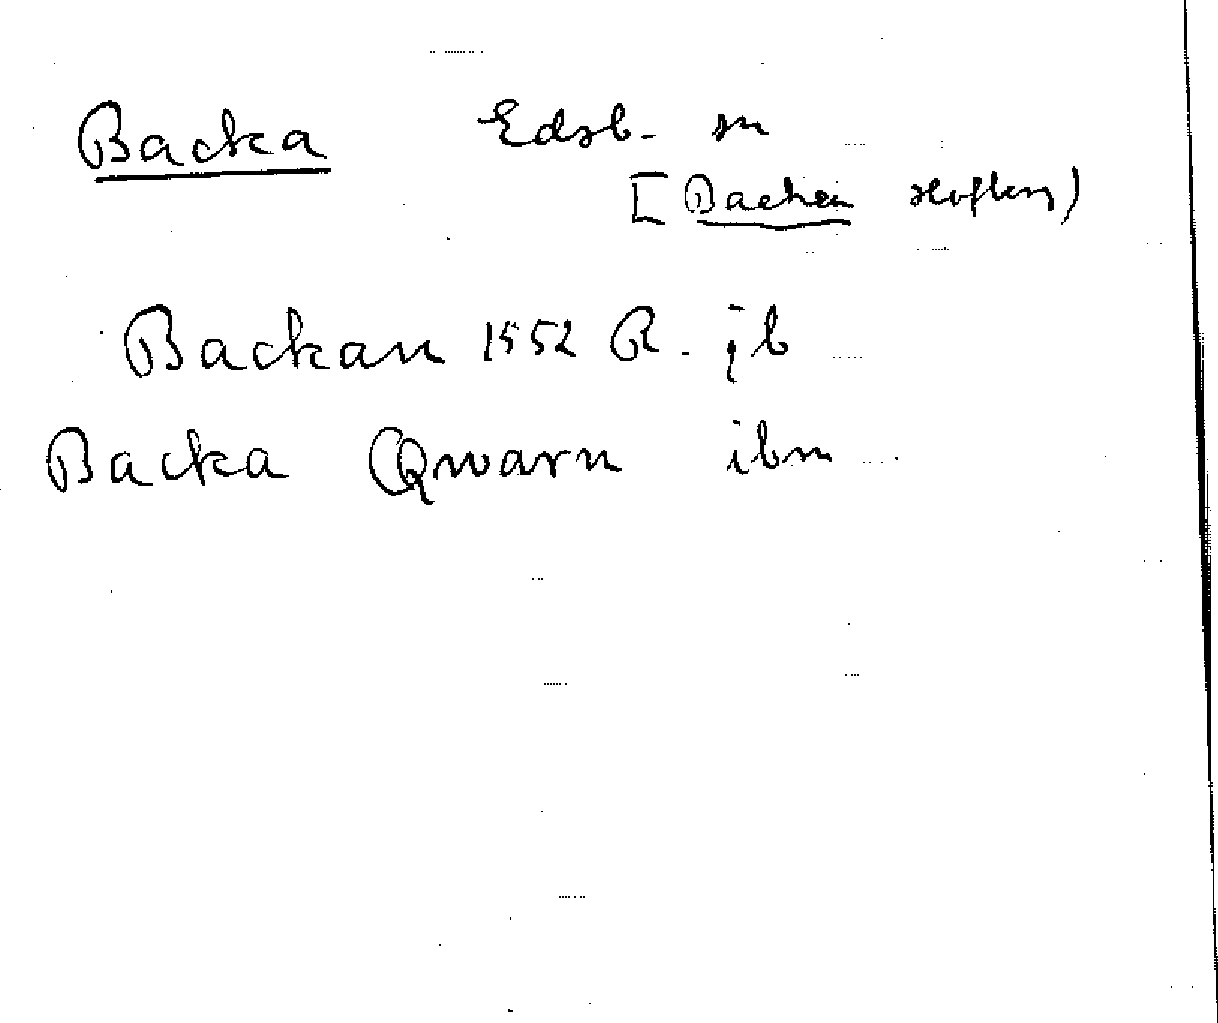 Backa Edsb. sn
[Backen
Backan 1552 R. jb
Backa Qwarn ibm